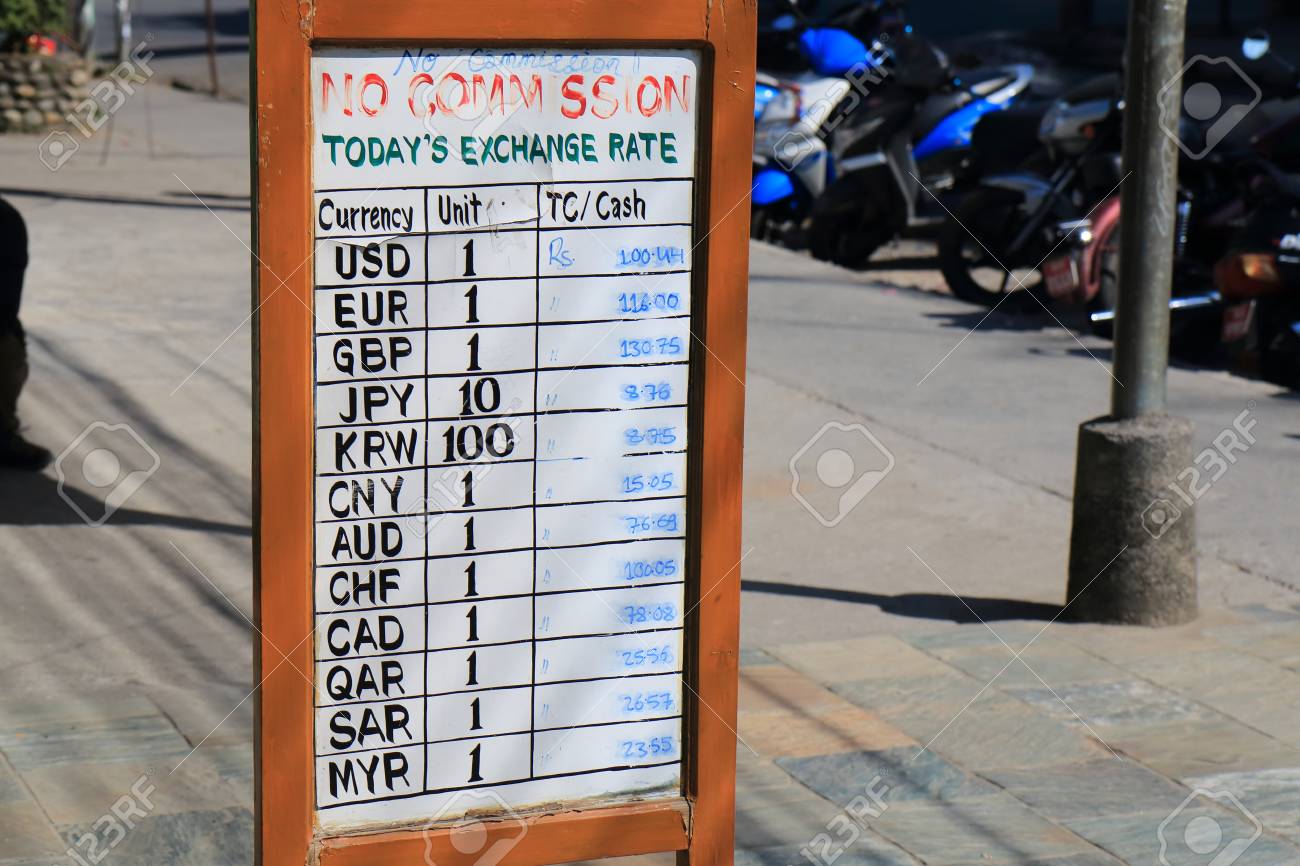 No Commission!!
NO COMM SSION
TODAY'S EXCHANGE RATE
Currency Unit TC/Cash
USD 1 Rs. 100.44
EUR 1 " 116.00
GBP 1 " 130.75
JPY 10 " 8.76
KRW 100 " 8.75
CNY 1 " 15.05
AUD 1 " 76.69
CHF 1 " 100.05
CAD 1 " 78.08
QAR 1 " 25.56
SAR 1 " 26.57
MYR 1 " 23.55
123RF
123RF
123RF
123RF
123RF
123RF
123RF
123RF